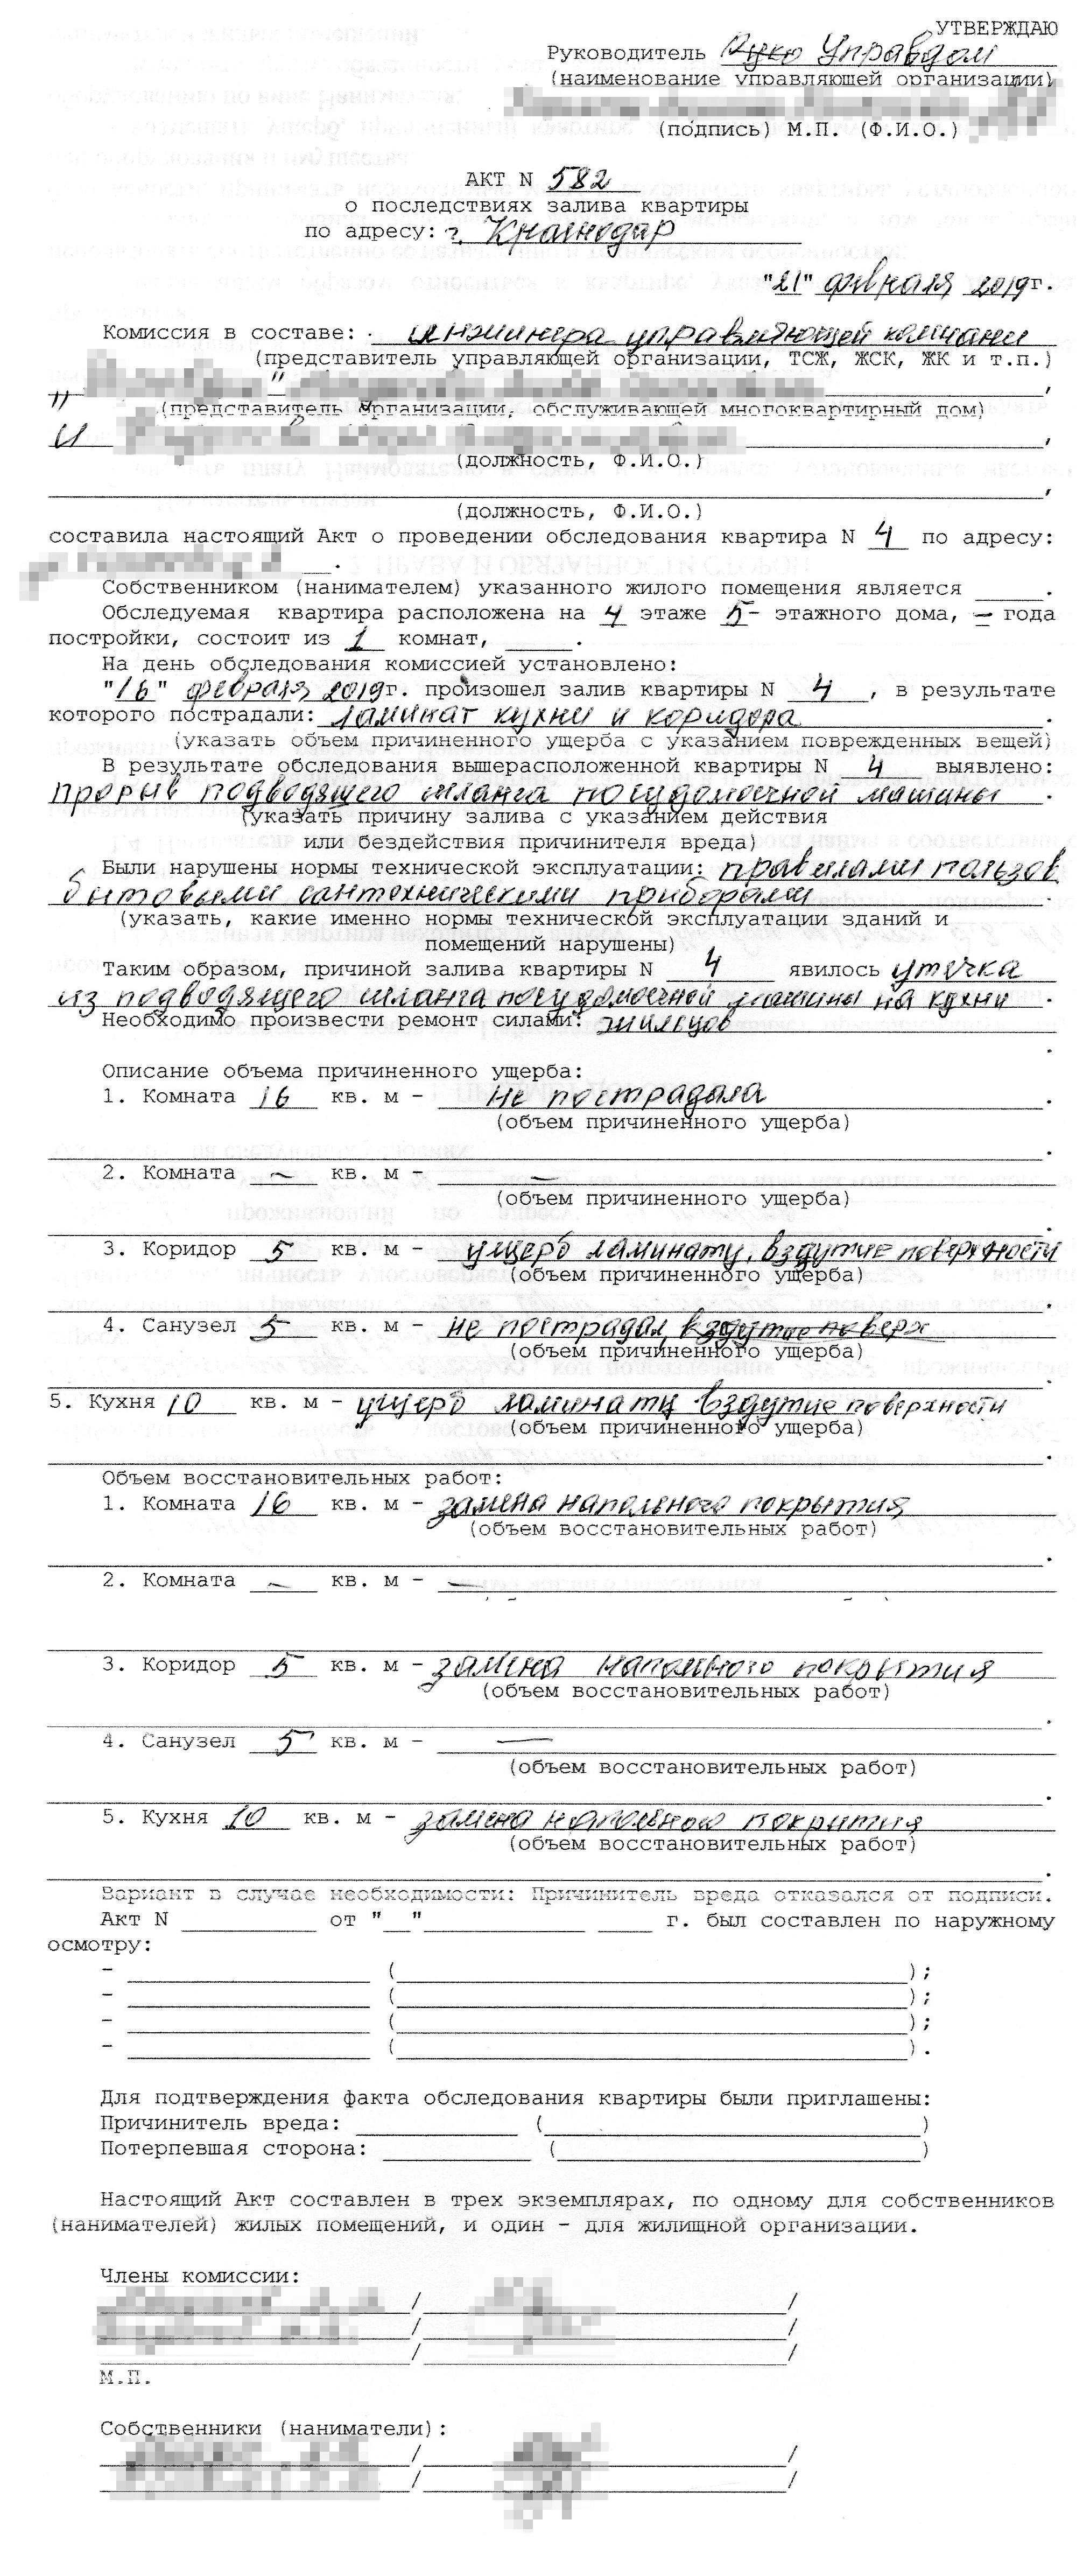 УТВЕРЖДАЮ
Руководитель Управдом
(наименование управляющей организации)
(подпись) М.П. (Ф.И.О.)
АКТ N 582
о последствиях залива квартиры
по адресу: г. Краснодар
"21" февраля 2019г.
Комиссия в составе: инжинера управляющей компании
(представитель управляющей организации, ТСЖ, ЖСК, ЖК и т.п.)
" " ,
(представитель организации, обслуживающей многоквартирный дом)
и ,
(должность, Ф.И.О.)
,
(должность, Ф.И.О.)
составила настоящий Акт о проведении обследования квартира N 4 по адресу:
.
Собственником (нанимателем) указанного жилого помещения является ____.
Обследуемая квартира расположена на 4 этаже 5- этажного дома, – года
постройки, состоит из 1 комнат, _____.
На день обследования комиссией установлено:
"16" февраля 2019г. произошел залив квартиры N 4 , в результате
которого пострадали: ламинат кухни и коридора .
(указать объем причиненного ущерба с указанием поврежденных вещей)
В результате обследования вышерасположенной квартиры N 4 выявлено:
прорыв подводящего шланга посудомоечной машины .
(указать причину залива с указанием действия
или бездействия причинителя вреда)
Были нарушены нормы технической эксплуатации: правилами пользов
бытовыми сантехническими приборами
(указать, какие именно нормы технической эксплуатации зданий и
помещений нарушены)
Таким образом, причиной залива квартиры N 4 явилось утечка
из подводящего шланга посудомоечной машины на кухни .
Необходимо произвести ремонт силами: жильцов
.
Описание объема причиненного ущерба:
1. Комната 16 кв. м – не пострадала .
(объем причиненного ущерба)
.
2. Комната – кв. м – –
(объем причиненного ущерба)
.
3. Коридор 5 кв. м – ущерб ламинату, вздутие поверхности
(объем причиненного ущерба)
.
4. Санузел 5 кв. м – не пострадал, вздутие поверх
(объем причиненного ущерба)
.
5. Кухня 10 кв. м – ущерб ламинату вздутие поверхности
(объем причиненного ущерба)
.
Объем восстановительных работ:
1. Комната 16 кв. м – замена напольного покрытия
(объем восстановительных работ)
.
2. Комната – кв. м – –
3. Коридор 5 кв. м – замена напольного покрытия
(объем восстановительных работ)
.
4. Санузел 5 кв. м – —
(объем восстановительных работ)
.
5. Кухня 10 кв. м – замена напольного покрытия
(объем восстановительных работ)
.
Вариант в случае необходимости: Причинитель вреда отказался от подписи.
Акт N __________ от "__"____________ ____ г. был составлен по наружному
осмотру:
– __________________ (______________________________________);
– __________________ (______________________________________);
– __________________ (______________________________________);
– __________________ (______________________________________).
Для подтверждения факта обследования квартиры были приглашены:
Причинитель вреда: ____________ (____________________________)
Потерпевшая сторона: ___________ (___________________________)
Настоящий Акт составлен в трех экземплярах, по одному для собственников
(нанимателей) жилых помещений, и один – для жилищной организации.
Члены комиссии:
/ /
/ /
/ /
М.П.
Собственники (наниматели):
/ /
/ /